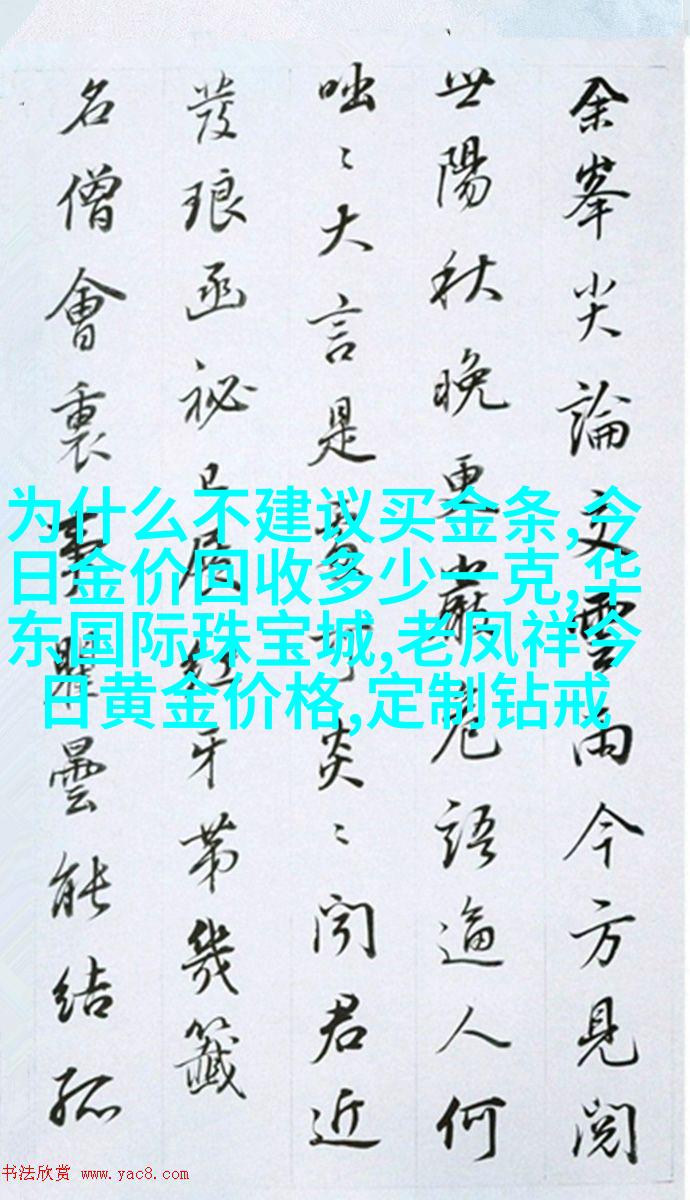 余峯尖論文雲雨今方見閲
世陽秋晚更嚴危語逼人何
咄〻大言是炎〻聞君近
發琅函祕已展紅牙第幾籤
名僧會裏瞿曇能結孤
为什么不建议买金条,今
日金价回收多少一克,华
东国际珠宝城,老凤祥今
日黄金价格,定制钻戒
书法欣赏 www.yac8.com